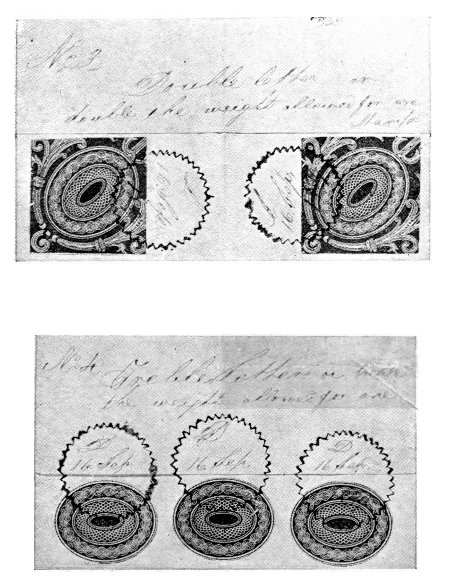 No 3
Double letter or
double the weight allowed for one
16 Sep.
16 Sep.
No 4 Treble letter or
the weight allowed for one
D D D
16 Sep. 16 Sep. 16 Sep.